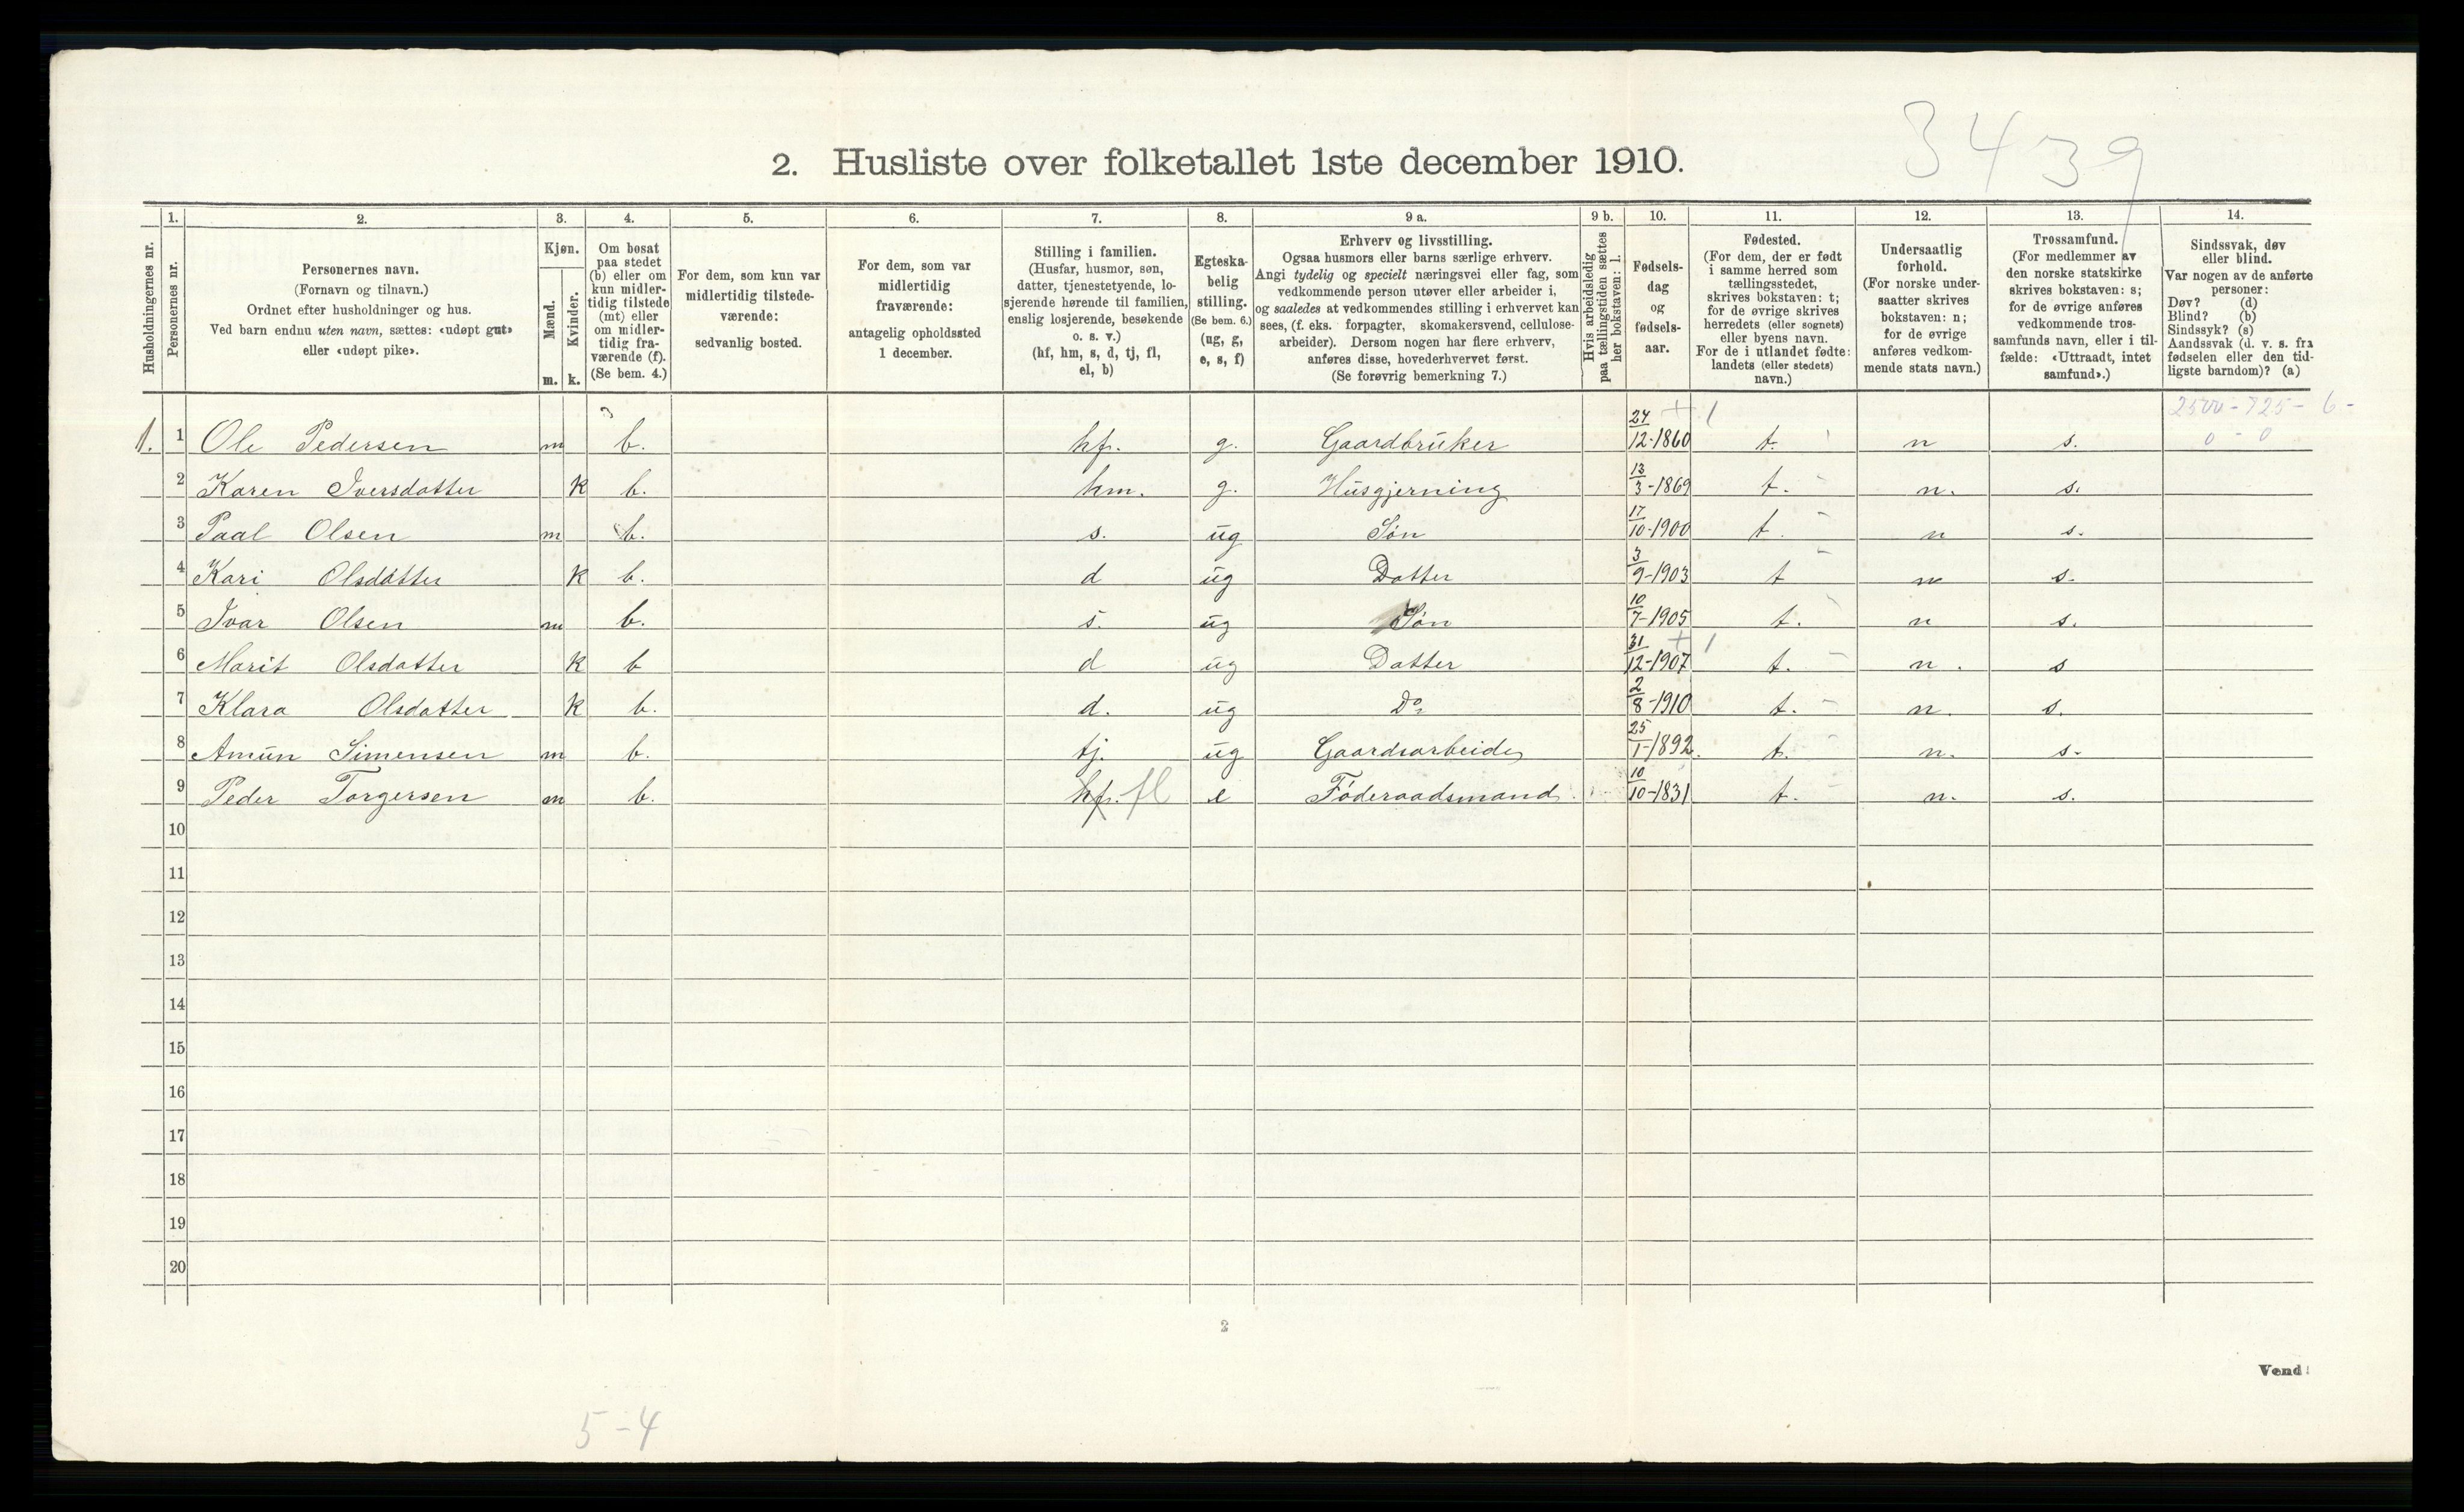 3439
2. Husliste over folketallet 1ste december 1910.
1. 2. 3. 4. 5. 6. 7. 8. 9 a. 9 b. 10. 11. 12. 13. 14.
Husholdningernes nr.
Personernes nr.
Personernes navn.
(Fornavn og tilnavn.)
Ordnet efter husholdninger og hus.
Ved barn endnu uten navn, sættes: «udøpt gut»
eller «udøpt pike».
Kjøn.
Mænd.
Kvinder.
m. k.
Om bosat
paa stedet
(b) eller om
kun midler-
tidig tilstede
(mt) eller
om midler-
tidig fra-
værende (f).
(Se bem. 4.)
For dem, som kun var
midlertidig tilstede-
værende:
sedvanlig bosted.
For dem, som var
midlertidig
fraværende:
antagelig opholdssted
1 december.
Stilling i familien.
(Husfar, husmor, søn,
datter, tjenestetyende, lo-
sjerende hørende til familien,
enslig losjerende, besøkende
o. s. v.)
(hf, hm, s, d, tj, fl,
el, b)
Egteska-
belig
stilling.
(Se bem. 6.)
(ug, g,
e, s, f)
Erhverv og livsstilling.
Ogsaa husmors eller barns særlige erhverv.
Angi tydelig og specielt næringsvei eller fag, som
vedkommende person utøver eller arbeider i,
og saaledes at vedkommendes stilling i erhvervet kan
sees, (f. eks. forpagter, skomakersvend, cellulose-
arbeider). Dersom nogen har flere erhverv,
anføres disse, hovederhvervet først.
(Se forøvrig bemerkning 7.)
Hvis arbeidsledig
paa tællingstiden sættes
her bokstaven: l.
Fødsels-
dag
og
fødsels-
aar.
Fødested.
(For dem, der er født
i samme herred som
tællingsstedet,
skrives bokstaven: t;
for de øvrige skrives
herredets (eller sognets)
eller byens navn.
For de i utlandet fødte:
landets (eller stedets)
navn.)
Undersaatlig
forhold.
(For norske under-
saatter skrives
bokstaven: n;
for de øvrige
anføres vedkom-
mende stats navn.)
Trossamfund.
(For medlemmer av
den norske statskirke
skrives bokstaven: s;
for de øvrige anføres
vedkommende tros-
samfunds navn, eller i til-
fælde: «Uttraadt, intet
samfund».)
Sindssvak, døv
eller blind.
Var nogen av de anførte
personer:
Døv? (d)
Blind? (b)
Sindssyk? (s)
Aandssvak (d. v. s. fra
fødselen eller den tid-
ligste barndom)? (a)
2500-725-6-
0-0
1. 1 Ole Pedersen m b. hf. g. Gaardbruker 24/12-1860 t. n s.
2 Karen Iversdatter k b. hm. g. Husgjerning 13/3-1869 t. n. s.
3 Paal Olsen m b. s. ug Søn 17/10-1900 t. n s.
4 Kari Olsdatter k b. d ug Datter 3/9-1903 t n s.
5 Ivar Olsen m b. s. ug Søn 10/7-1905 t. n s.
6 Marit Olsdatter k b d ug Datter 31/12-1907 t. n. s
7 Klara Olsdatter k b. d. ug Do 2/8-1910 t. n. s.
8 Amun Simensen m b. tj. ug Gaardsarbeider 25/1-1892. t. n. s.
9 Peder Torgersen m b. hf. fl e Føderaadsmand. 10/10-1831 t. n. s.
10
11
12
13
14
15
16
17
18
19
20
2
Vend!
5-4